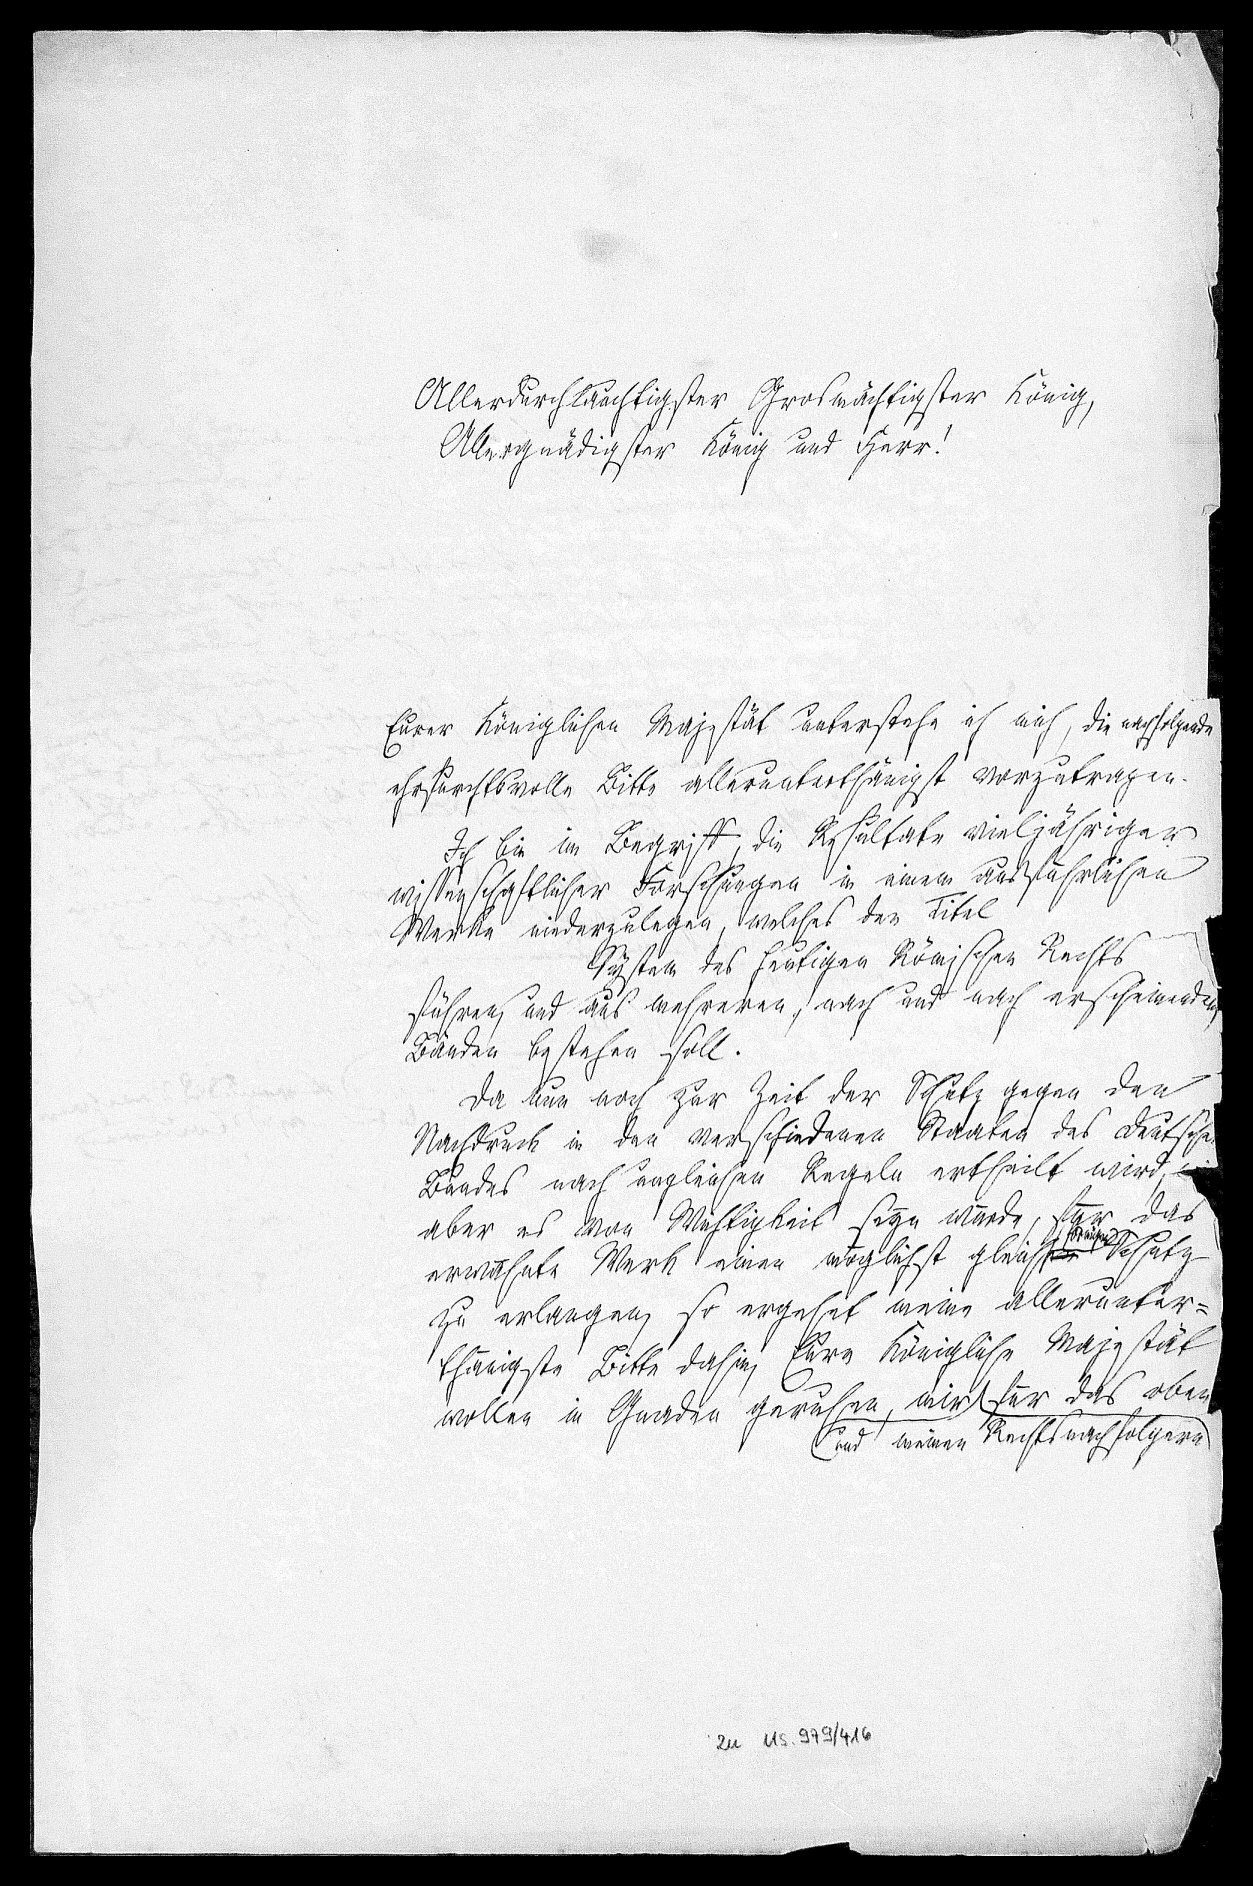 Allerdurchlauchtigster Grosmächtigster König,
Allergnädigster König und Herr!
Eurer Königlichen Majestät unterstehe ich mich, die nachfolgende
ehrfurchtsvolle Bitte allerunterthänigst vorzutragen.
Ich bin im Begriff, die Resultate vieljähriger
wissenschaftlicher Forschungen in einem ausführlichen
Werke niederzulegen, welches den Titel
System des heutigen Römischen Rechts
führen, und aus mehreren, nach und nach erscheinenden
Bänden bestehen soll.
Da nun noch zur Zeit der Schutz gegen den
Nachdruck in den verschiedenen Staaten des deutschen
Bundes nach ungleichen Regeln ertheilt wird,
aber es von Wichtigkeit seyn würde, für das
erwähnte Werk einen möglichst gleichförmigen Schutz
zu erlangen, so ergehet meine allerunter=
thänigste Bitte dahin, Eure Königliche Majestät
wollen in Gnaden geruhen, mir für das oben
und meinen Rechtsnachfolgern
zu Ms. 979/416